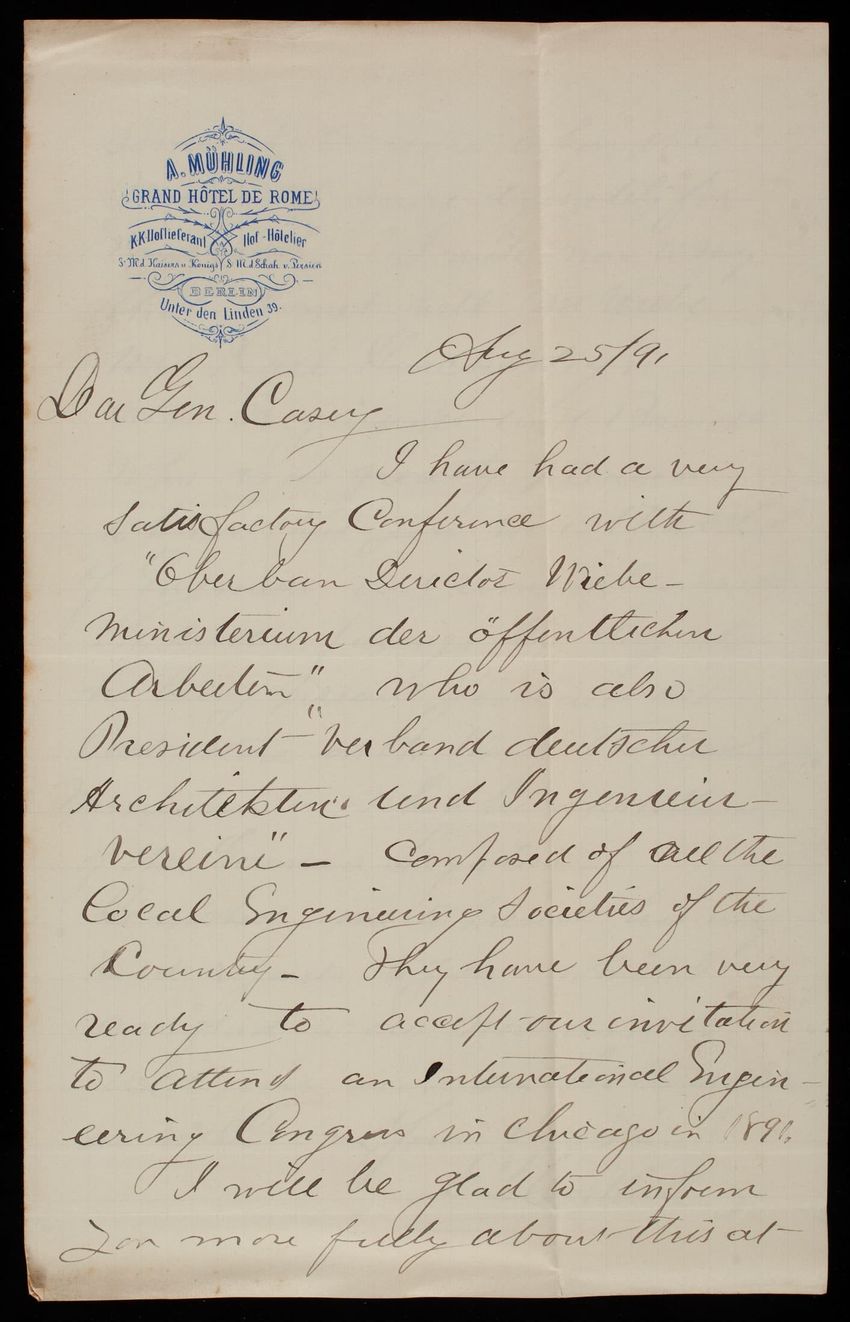 A. MÜHLING
GRAND HÔTEL DE ROME
K.K. Hoflieferant Hof-Hôtelier
S. M. d. Kaisers u. Königs S. M. d. Schah v. Persien
BERLIN
Unter den Linden 39.
Aug 25/91
Dear Gen. Casey
I have had a very
satisfactory Conference with
"Oberbau Director Wiebe-
Ministerium der öffentlichen
Arbeiten" who is also
President "Verband deutscher
Architekten und Ingenieur-
vereine" - composed of all the
local Engineering Societies of the
Country - They have been very
ready to accept our invitation
to attend an International Engin-
eering Congress in Chicago in 189
I will be glad to inform
you more fully about this at